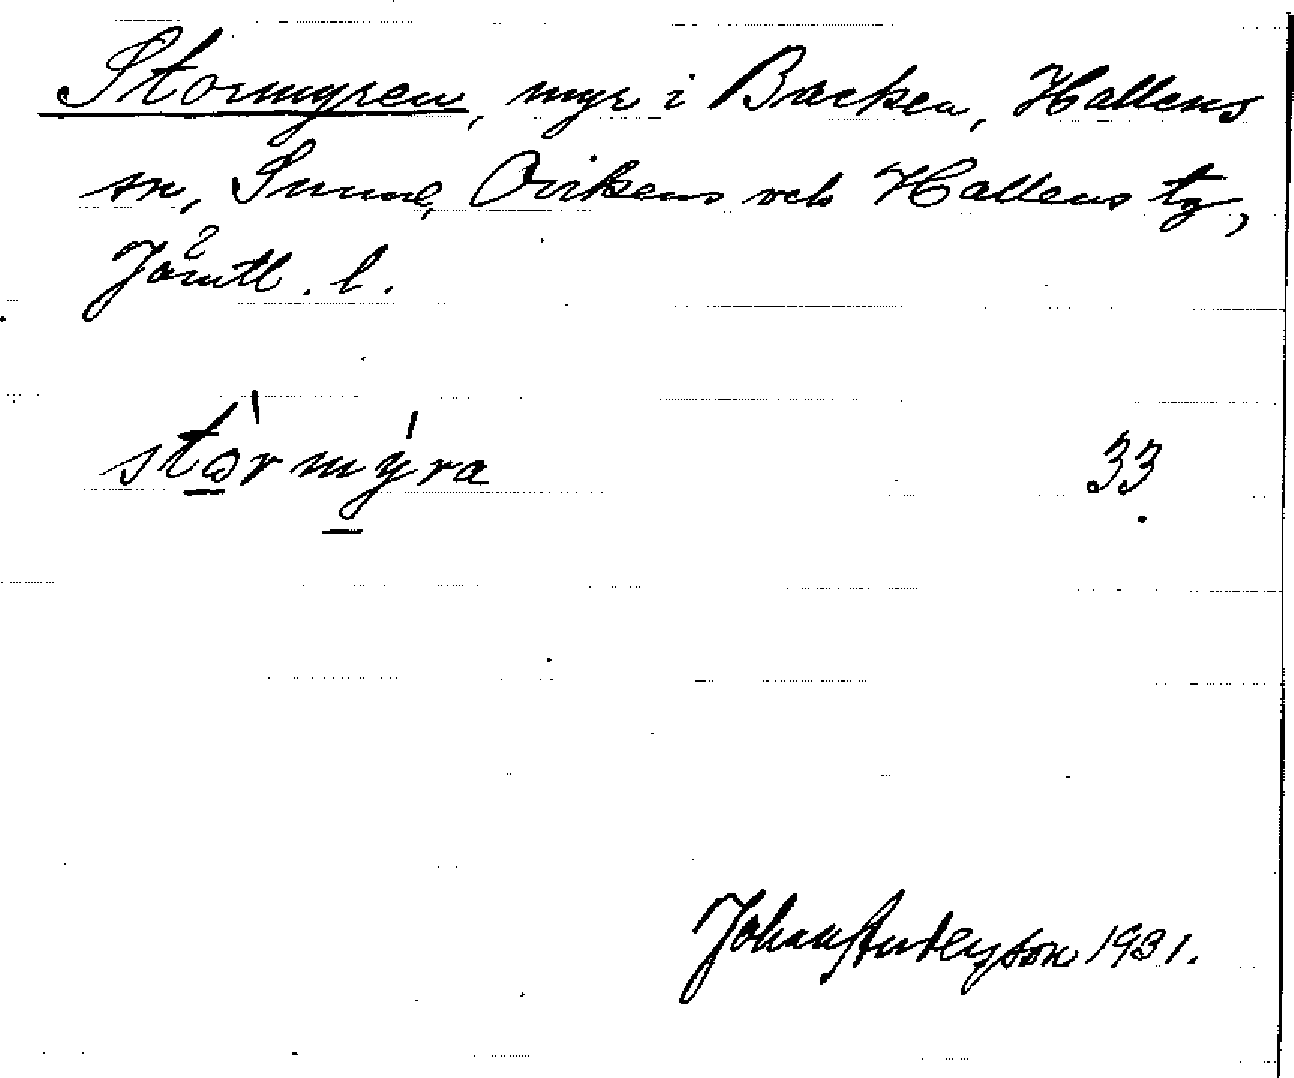 Stormyren, myr i Backen, Hallens
sn, Sunne, Ovikens och Hallens tg,
Jämtl. l.
stòrmýra 33
Johan Anderson 1931.